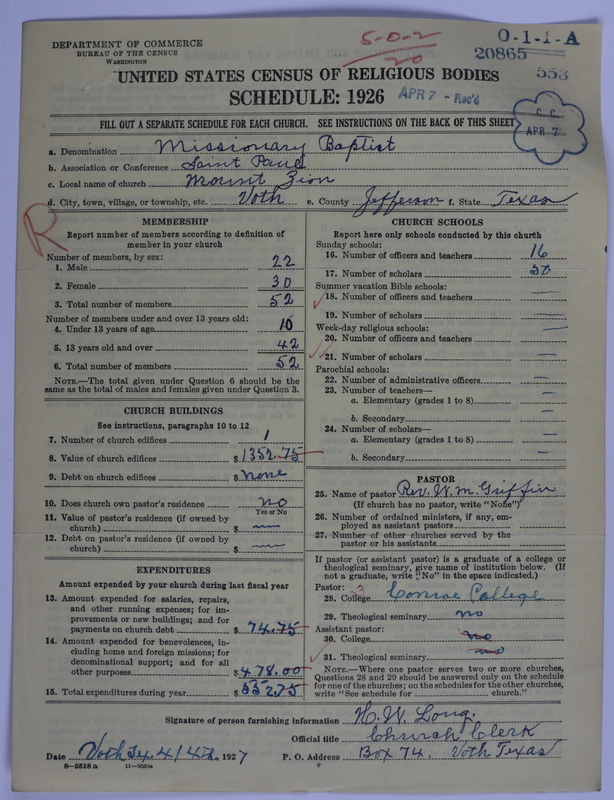 DEPARTMENT OF COMMERCE
BUREAU OF THE CENSUS
WASHINGTON
5-0-2
20
O-1-1-A
20865
553
UNITED STATES CENSUS OF RELIGIOUS BODIES
SCHEDULE: 1926
APR 7 - Rec'd
C. C.
APR 7
FILL OUT A SEPARATE SCHEDULE FOR EACH CHURCH. SEE INSTRUCTIONS ON THE BACK OF THIS SHEET
a. Denomination Missionary Baptist
b. Association or Conference Saint Paul
c. Local name of church Mount Zion
d. City, town, village, or township, etc. Voth e. County Jefferson f. State Texas
R
MEMBERSHIP
Report number of members according to definition of
member in your church
Number of members, by sex:
1. Male 22
2. Female 30
3. Total number of members 52
Number of members under and over 13 years old:
4. Under 13 years of age 10
5. 13 years old and over 42
6. Total number of members 52
NOTE.—The total given under Question 6 should be
the same as the total of males and females given under Question 3.
CHURCH BUILDINGS
See instructions, paragraphs 10 to 12
7. Number of church edifices 1
8. Value of church edifices $ 1352.75
9. Debt on church edifices $ none
10. Does church own pastor's residence no
Yes or No
11. Value of pastor's residence (if owned by
church) $ —
12. Debt on pastor's residence (if owned by
church) $ —
EXPENDITURES
Amount expended by your church during last fiscal year
13. Amount expended for salaries, repairs,
and other running expenses; for im-
provements or new buildings; and for
payments on church debt $ 74.75
14. Amount expended for benevolences, in-
cluding home and foreign missions; for
denominational support; and for all
other purposes $ 478.00
15. Total expenditures during year $ 552.75
CHURCH SCHOOLS
Report here only schools conducted by this church
Sunday schools:
16. Number of officers and teachers 16
17. Number of scholars 50
Summer vacation Bible schools:
18. Number of officers and teachers —
19. Number of scholars —
Week-day religious schools:
20. Number of officers and teachers —
21. Number of scholars —
Parochial schools:
22. Number of administrative officers —
23. Number of teachers—
a. Elementary (grades 1 to 8) —
b. Secondary —
24. Number of scholars—
a. Elementary (grades 1 to 8) —
b. Secondary —
PASTOR
25. Name of pastor Rev. W. M. Griffin
(If church has no pastor, write "None")
26. Number of ordained ministers, if any, em-
ployed as assistant pastors
27. Number of other churches served by the
pastor or his assistants
If pastor (or assistant pastor) is a graduate of a college or
theological seminary, give name of institution below. (If
not a graduate, write "No" in the space indicated.)
Pastor:
28. College Conroe College
29. Theological seminary no
Assistant pastor:
30. College no
31. Theological seminary no
NOTE.—Where one pastor serves two or more churches,
Questions 28 and 29 should be answered only on the schedule
for one of the churches; on the schedules for the other churches,
write "See schedule for church."
Signature of person furnishing information H. W. Long
Official title Church Clerk
Date Voth Tx. 4/4th, 1927 P. O. Address Box 74. Voth Texas
8—5518 a